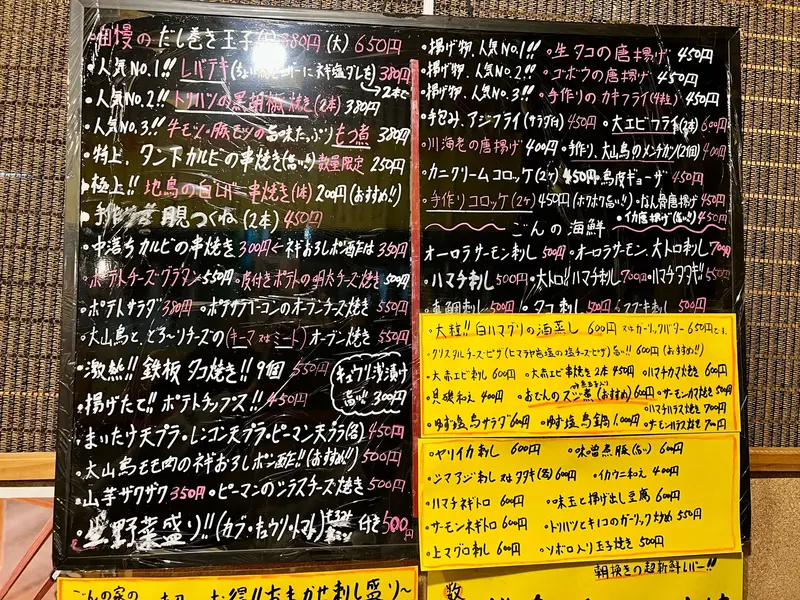 自慢のだし巻き玉子(小)380円 (大)650円
・人気No.1!! レバテキ(ちょい焼きレバーにネギ塩ダレを)380円
2本で
・人気No.2!! トリハツの黒胡椒焼き(2本)380円
・人気No.3!! 牛モツ・豚モツの旨味たっぷり もつ煮 380円
・特上、タン下カルビの串焼き(旨い!)数量限定 250円
・極上!! 地鳥の白レバー串焼き(1本)200円(おすすめ!!)
月見つくね(2本)450円
・中落ちカルビの串焼き 300円 ネギおろしポン酢は 350円
・ポテトチーズグラタン 550円 ・皮付きポテトの明太チーズ焼き 500円
・ポテトサラダ 380円 ・ポテサラベーコンのオーブンチーズ焼き 550円
・大山鳥と、とろ〜りチーズの(キーマ又はミート)オーブン焼き 550円
・激熱!! 鉄板タコ焼き!! 9個 550円
キュウリ浅漬け
旨い!! 300円
・揚げたて!! ポテトチップス!! 450円
・まいたけ天プラ・レンコン天プラ・ピーマン天プラ(各)450円
・大山鳥モモ肉のネギおろしポン酢!!(おすすめ!!)500円
・山芋ザクザク 350円 ・ピーマンのシラスチーズ焼き 500円
・生野菜盛り!!(カブ・キュウリ・トマト) 付き 500円
・揚げ物、人気No.1!! ・生タコの唐揚げ 450円
・揚げ物、人気No.2!! ・ゴボウの唐揚げ 450円
・揚げ物、人気No.3!! ・手作りのカキフライ(4粒)450円
・手包み、アジフライ 450円 ・大エビフライ(2本)600円
・川海老の唐揚げ 400円 ・手作り、大山鳥のメンチカツ(2個)400円
カニクリームコロッケ(2ヶ)450円 鳥皮ギョーザ 450円
・手作りコロッケ(2ヶ)450円(ホクホク旨い!!) ・なん骨唐揚げ 450円
・イカ唐揚げ(旨い!!)450円
ごんの海鮮
オーロラサーモン刺し 500円 ・オーロラサーモン、大トロ刺し 700円
・ハマチ刺し 500円 ・大トロ!! ハマチ刺し 700円 ・ハマチタタキ!! 550円
・真鯛刺し 500円 ・タコ刺し 500円 500円
・大粒!! 白ハマグリの酒蒸し 600円 又はガーリックバター 650円です。
・クリスタルチーズ・ピザ(ヒマラヤ岩塩の塩チーズピザ)旨い!! 600円(おすすめ!!)
・大赤エビ刺し 600円 ・大赤エビ串焼き2本 450円 ・ハマチカマ焼き 600円
・貝磯和え 400円 ・おでんのスジ煮(おすすめ)600円 ・サーモンカマ焼き 500円
・ゆず塩鳥サラダ 600円 ・ゆず塩鳥鍋 1,000円 ・ハマチハラス焼き 700円
・サーモンハラス焼き 700円
・ヤリイカ刺し 600円 ・味噌煮豚(旨い)600円
・シマアジ刺し又はタタキ(各)600円 ・イカウニ和え 400円
・ハマチネギトロ 600円 ・味玉と揚げ出し豆腐 600円
・サーモンネギトロ 600円 ・トリハツとキノコのガーリック炒め 550円
・上マグロ刺し 600円 ・ソボロ入り玉子焼き 500円
朝挽きの超新鮮レバー!!
ごんの家の お得!! おまかせ刺し盛り〜
数